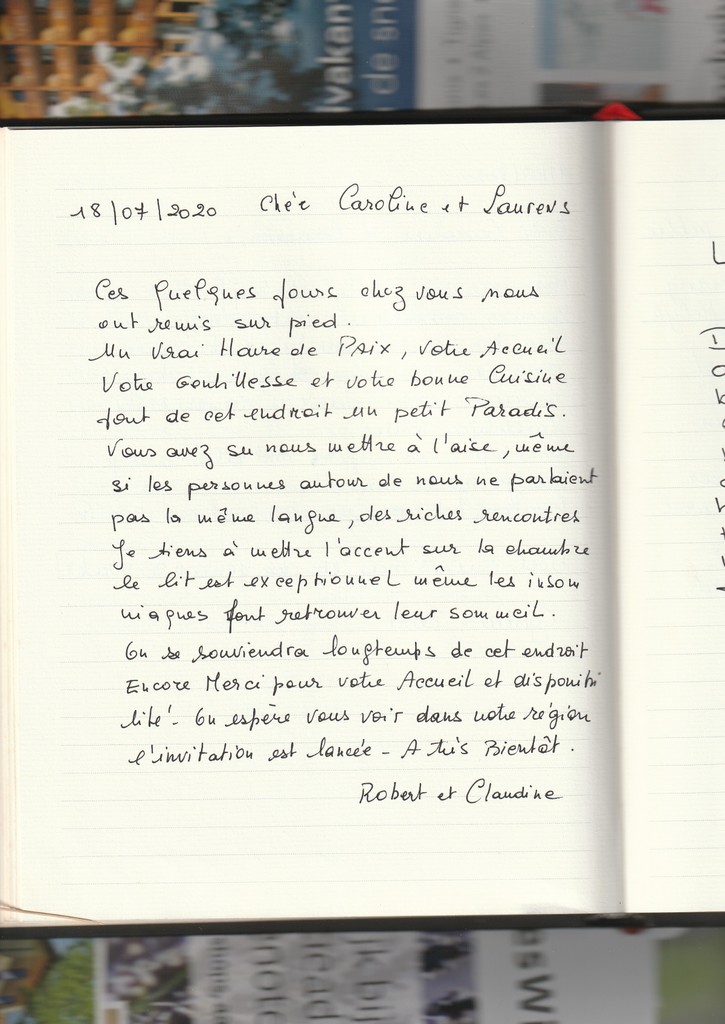 vakan
de sne
18/07/2020 Chér Caroline et Laurens
Ces quelques jours chez vous nous
ont remis sur pied.
Un Vrai Havre de Paix, votre Accueil
Votre Gentillesse et votre bonne Cuisine
font de cet endroit un petit Paradis.
Vous avez su nous mettre à l'aise, même
si les personnes autour de nous ne parlaient
pas la même langue, des riches rencontres
Je tiens à mettre l'accent sur la chambre
le lit est exceptionnel même les insom
niaques font retrouver leur sommeil.
On se souviendra longtemps de cet endroit
Encore Merci pour votre Accueil et disponibi
lité - On espère vous voir dans notre région
l'invitation est lancée - A très Bientôt.
Robert et Claudine